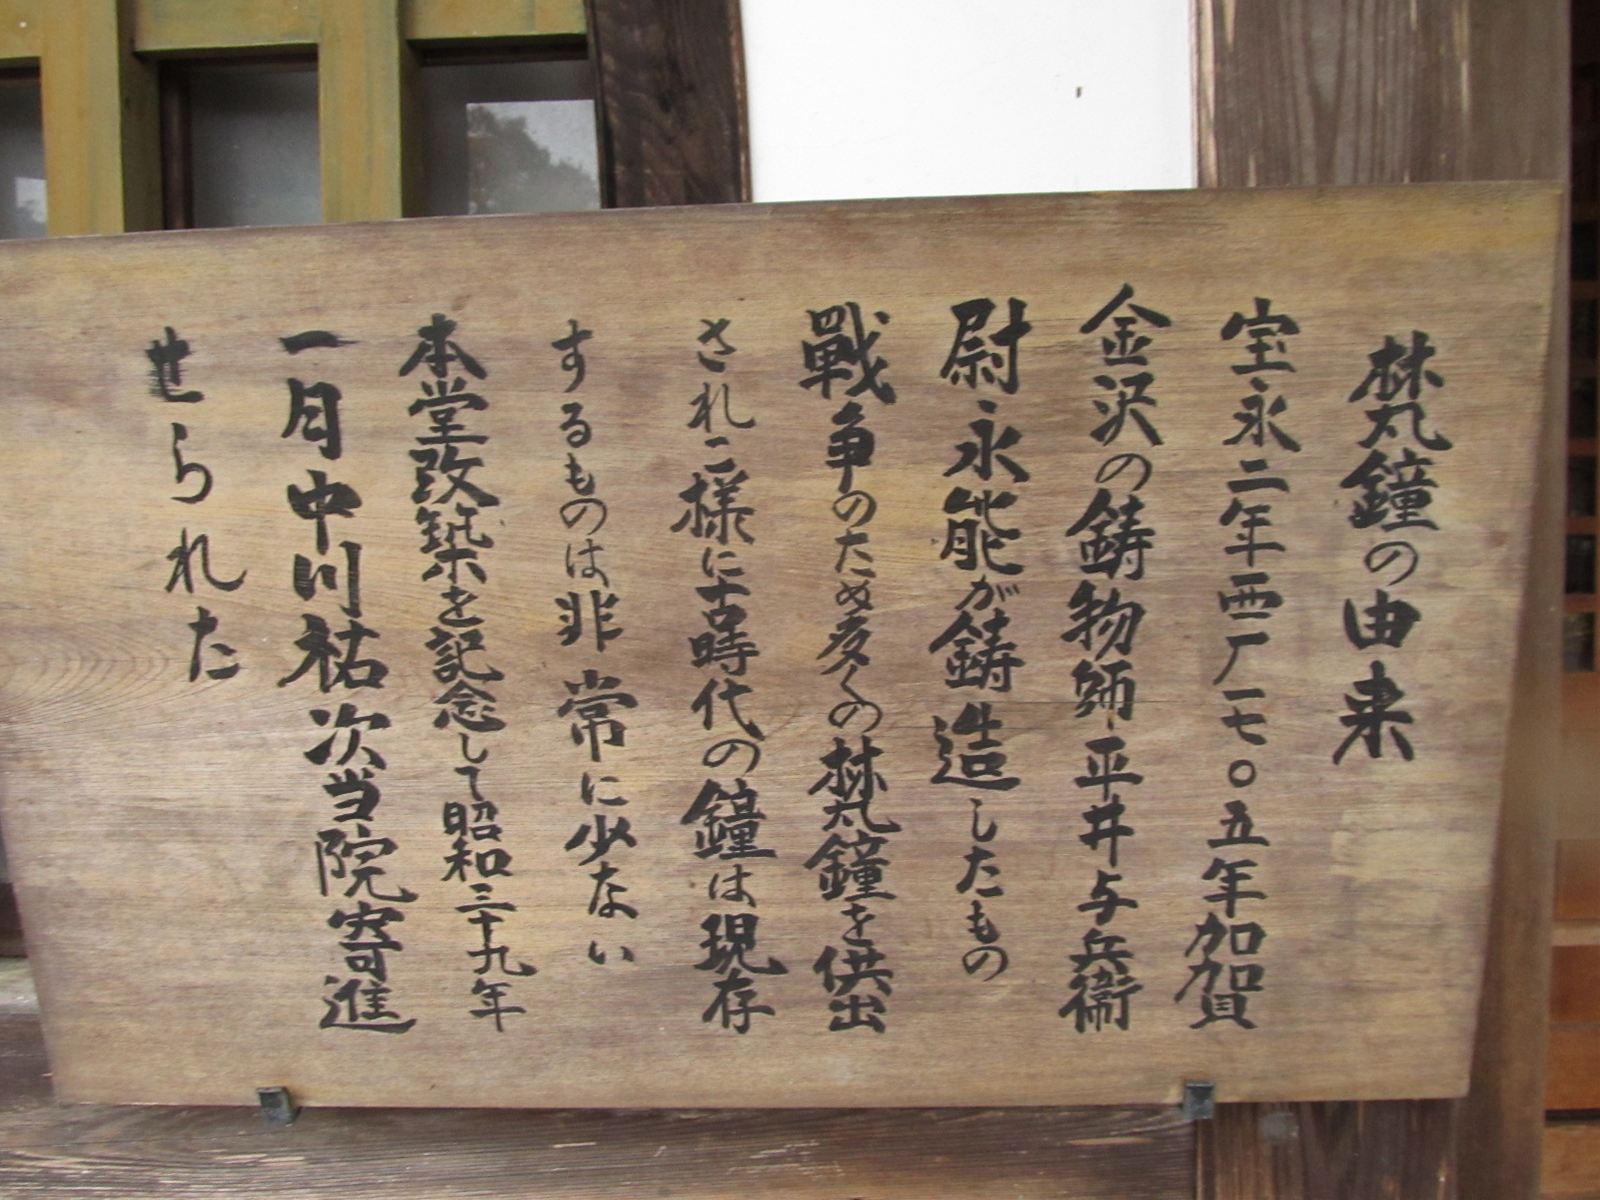 梵鐘の由来
宝永二年西厂一七〇五年加賀
金沢の鋳物師平井与兵衞
尉永能が鋳造したもの
戰争のため多くの梵鐘を供出
されこ様に古時代の鐘は現存
するものは非常に少ない
本堂改築を記念して昭和三十九年
一月中川祐次当院寄進
せられた